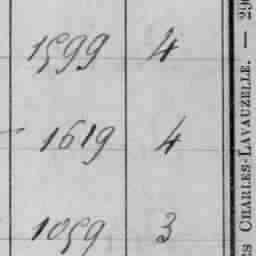 1599 4
1619 4
1059 3
S CHARLES-LAVAUZELLE. — 29